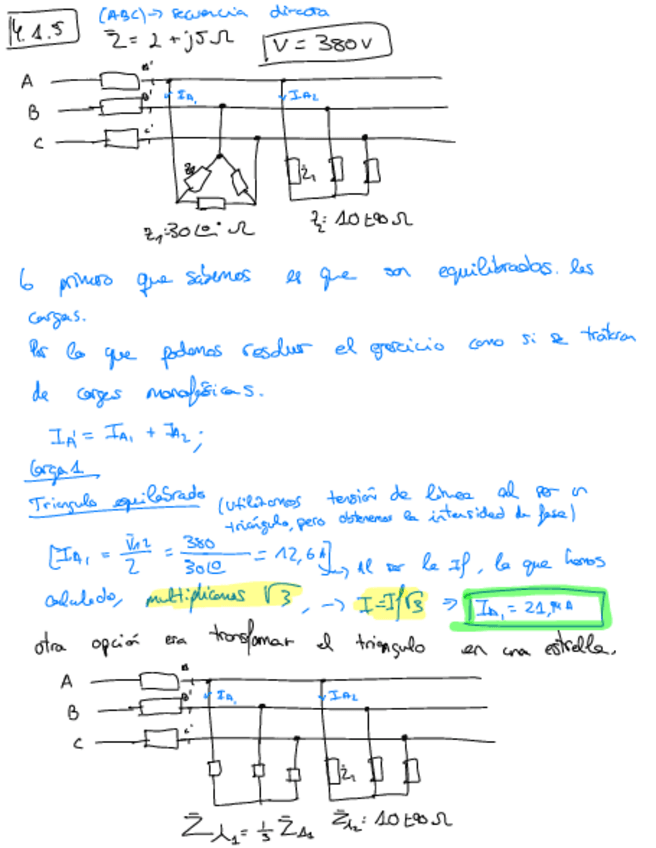 4.1.5 (ABC) → secuencia directa
Z̄ = 2 + j5 Ω V = 380 V
A A' I_A1 I_A2
B B'
C C'
Z_1 Z̄_1
Z_1: 30∠0° Ω Z_2: 10∠90 Ω
Lo primero que sabemos es que son equilibrados. las
cargas.
Por lo que podemos resolver el ejercicio como si se trataran
de cargas monofásicas.
I_A' = I_A1 + I_A2 ;
Carga 1
Triangulo equilibrado (utilizamos tensión de linea al ser un
triángulo, pero obtenemos la intensidad de fase)
[I_A1 = V̄12/Z = 380/30∠0 = 12,6 A] → Al ser la If, la que hemos
calculado, multiplicamos √3, → I = If√3 ⇒ I_A1 = 21,94 A
otra opción era transformar el triangulo en una estrella.
A A' I_A1 I_A2
B B'
C C'
Z̄_1
Z̄_⅄1 = 1/3 Z̄_Δ1 Z̄_⅄2: 10∠90 Ω